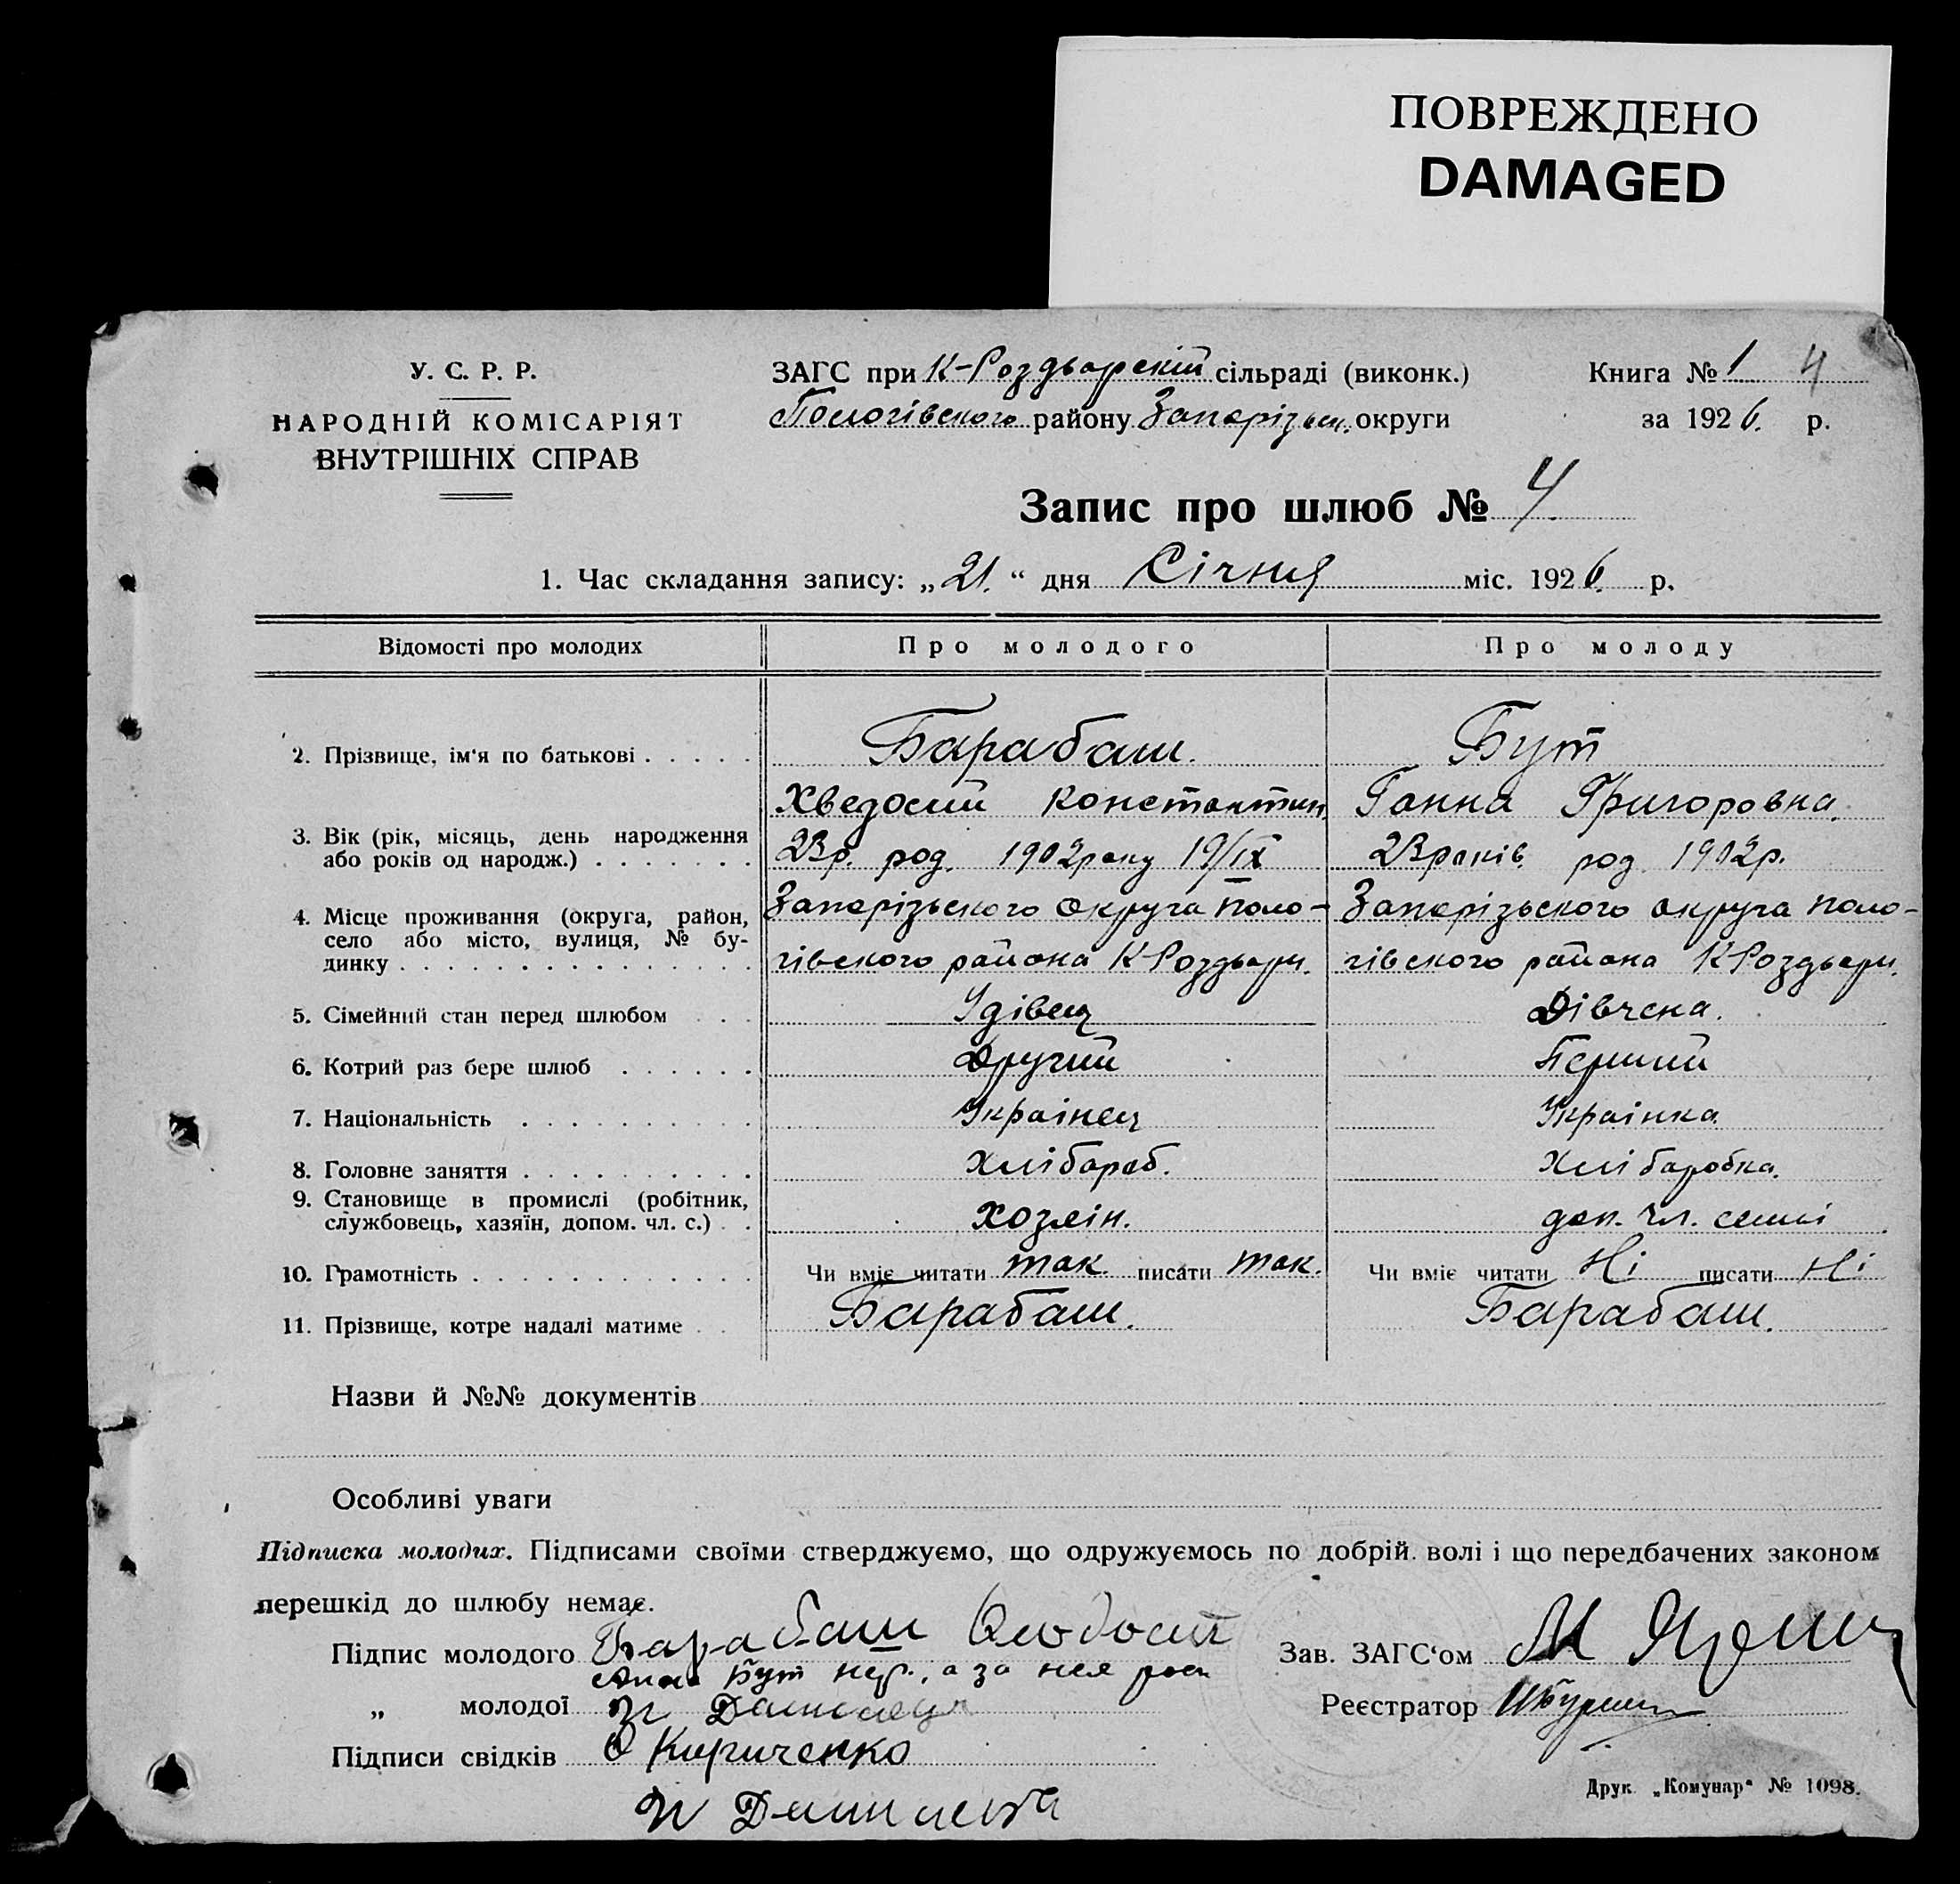 ПОВРЕЖДЕНО
DAMAGED
У. С. Р. Р.
НАРОДНІЙ КОМІСАРІЯТ
ВНУТРІШНІХ СПРАВ
ЗАГС при К-Роздьорскій сільраді (виконк.)
Пологівского району Запорізьк. округи
Книга № 1 4
за 1926. р.
Запис про шлюб № 4
1. Час складання запису: „21.“ дня Січня міс. 1926. р.
Відомості про молодих
Про молодого
Про молоду
2. Прізвище, ім'я по батькові . . . . .
Барабаш.
Бут
Хведосий Константин.
Ганна Григоровна.
3. Вік (рік, місяць, день народження
або років од народж.) . . . . . . .
23р. род. 1902року 19/IX
23років. род 1902р.
4. Місце проживання (округа, район,
село або місто, вулиця, № бу-
динку . . . . . . . . . . . . . . .
Запорізького округа Поло-
гівского района К-Роздьори.
Запорізького округа Поло-
гівского района К-Роздьори.
5. Сімейний стан перед шлюбом . . .
Удівец
Дівчена.
6. Котрий раз бере шлюб . . . . . .
Другий
Перший
7. Національність . . . . . . . . . .
Украінец
Украінка.
8. Головне заняття . . . . . . . . . .
Хлібороб.
Хліборобка.
9. Становище в промислі (робітник,
службовець, хазяїн, допом. чл. с.) . .
Хозяін.
доп. чл. семьі
10. Грамотність . . . . . . . . . . . .
Чи вміє читати так. писати так.
Чи вміє читати Ні писати Ні
11. Прізвище, котре надалі матиме . .
Барабаш.
Барабаш.
Назви й №№ документів
Особливі уваги
Підписка молодих. Підписами своїми стверджуємо, що одружуємось по добрій волі і що передбачених законом
перешкід до шлюбу немає.
Підпис молодого Барабаш
Бут а за нея
„ молодої
Підписи свідків О Кириченко
Зав. ЗАГС'ом М
Реєстратор
Друк. „Комунар“ № 1098.